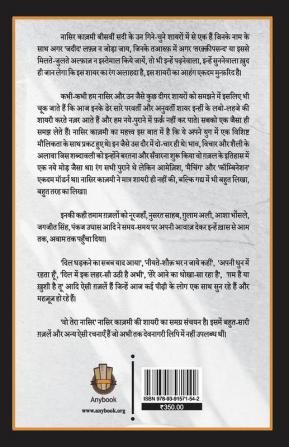 नासिर काज़मी बीसवीं सदी के उन गिने-चुने शायरों में से एक हैं जिनके नाम के
साथ अगर 'जदीद' लफ़्ज़ न जोड़ा जाय, जिनके तआरुफ़ में अगर 'तरक़्क़ीपसन्द' या इससे
मिलते-जुलते अल्फ़ाज़ न इस्तेमाल किये जायें, तो भी इन्हें पढ़नेवाला, इन्हें सुननेवाला ख़ुद
ही जान लेगा कि इस शायर का रंग अलाहदा है, इस शायरी का आहंग एकदम मुन्फ़रिद है।
कभी-कभी हम नासिर और उन जैसे कुछ दीगर शायरों को समझने में इसलिए भी
चूक जाते हैं कि आज इनके ढेर सारे परवर्ती और अनुवर्ती शायर इन्हीं के लबो-लहजे की
शायरी करते नज़र आते हैं और हम नये-पुराने में फ़र्क़ नहीं कर पाते। सबको एक जैसा ही
समझ लेते हैं। नासिर काज़मी का महत्त्व इस बात में है कि वे अपने युग में एक विशिष्ट
मौलिकता के साथ प्रकट हुए थे। इन जैसे उस दौर में दो-चार ही थे। भाव, विचार और शैली के
अलावा जिस शब्दावली को इन्होंने बरतना और सँवारना शुरू किया वो ग़ज़ल के इतिहास में
एक नये मोड़ जैसा था। रंग सभी पुराने थे लेकिन आमेज़िश, 'मैचिंग' और 'कॉम्बिनेशन'
एकदम मॉडर्न था। नासिर काज़मी ने मात्र शायरी ही नहीं की, बल्कि गद्य में भी बहुत लिखा,
बहुत तरह का लिखा।
इनकी कही तमाम ग़ज़लों को नूरजहाँ, नुसरत साहब, ग़ुलाम अली, आशा भोंसले,
जगजीत सिंह, पंकज उधास आदि ने समय-समय पर अपनी आवाज़ देकर इन्हें ख़ास से आम
तक, अवाम तक पहुँचा दिया।
'दिल धड़कने का सबब याद आया', 'नीयते-शौक़ भर न जाये कहीं', 'अपनी धुन में
रहता हूँ', 'दिल में इक लहर-सी उठी है अभी', 'तेरे आने का धोखा-सा रहा है', 'ग़म है या
ख़ुशी है तू' आदि ऐसी ग़ज़लें हैं जिन्हें आज कई पीढ़ी के लोग एक साथ सुन रहे हैं और
महज़ूज़ हो रहे हैं।
'वो तेरा नासिर' नासिर काज़मी की शायरी का समग्र संचयन है। इसमें बहुत-सारी
ग़ज़लें और अन्य ऐसी रचनाएँ हैं जो अभी तक देवनागरी लिपि में नहीं उपलब्ध थीं।
Anybook
www.anybook.org
ISBN 978-93-91571-54-2
₹350.00